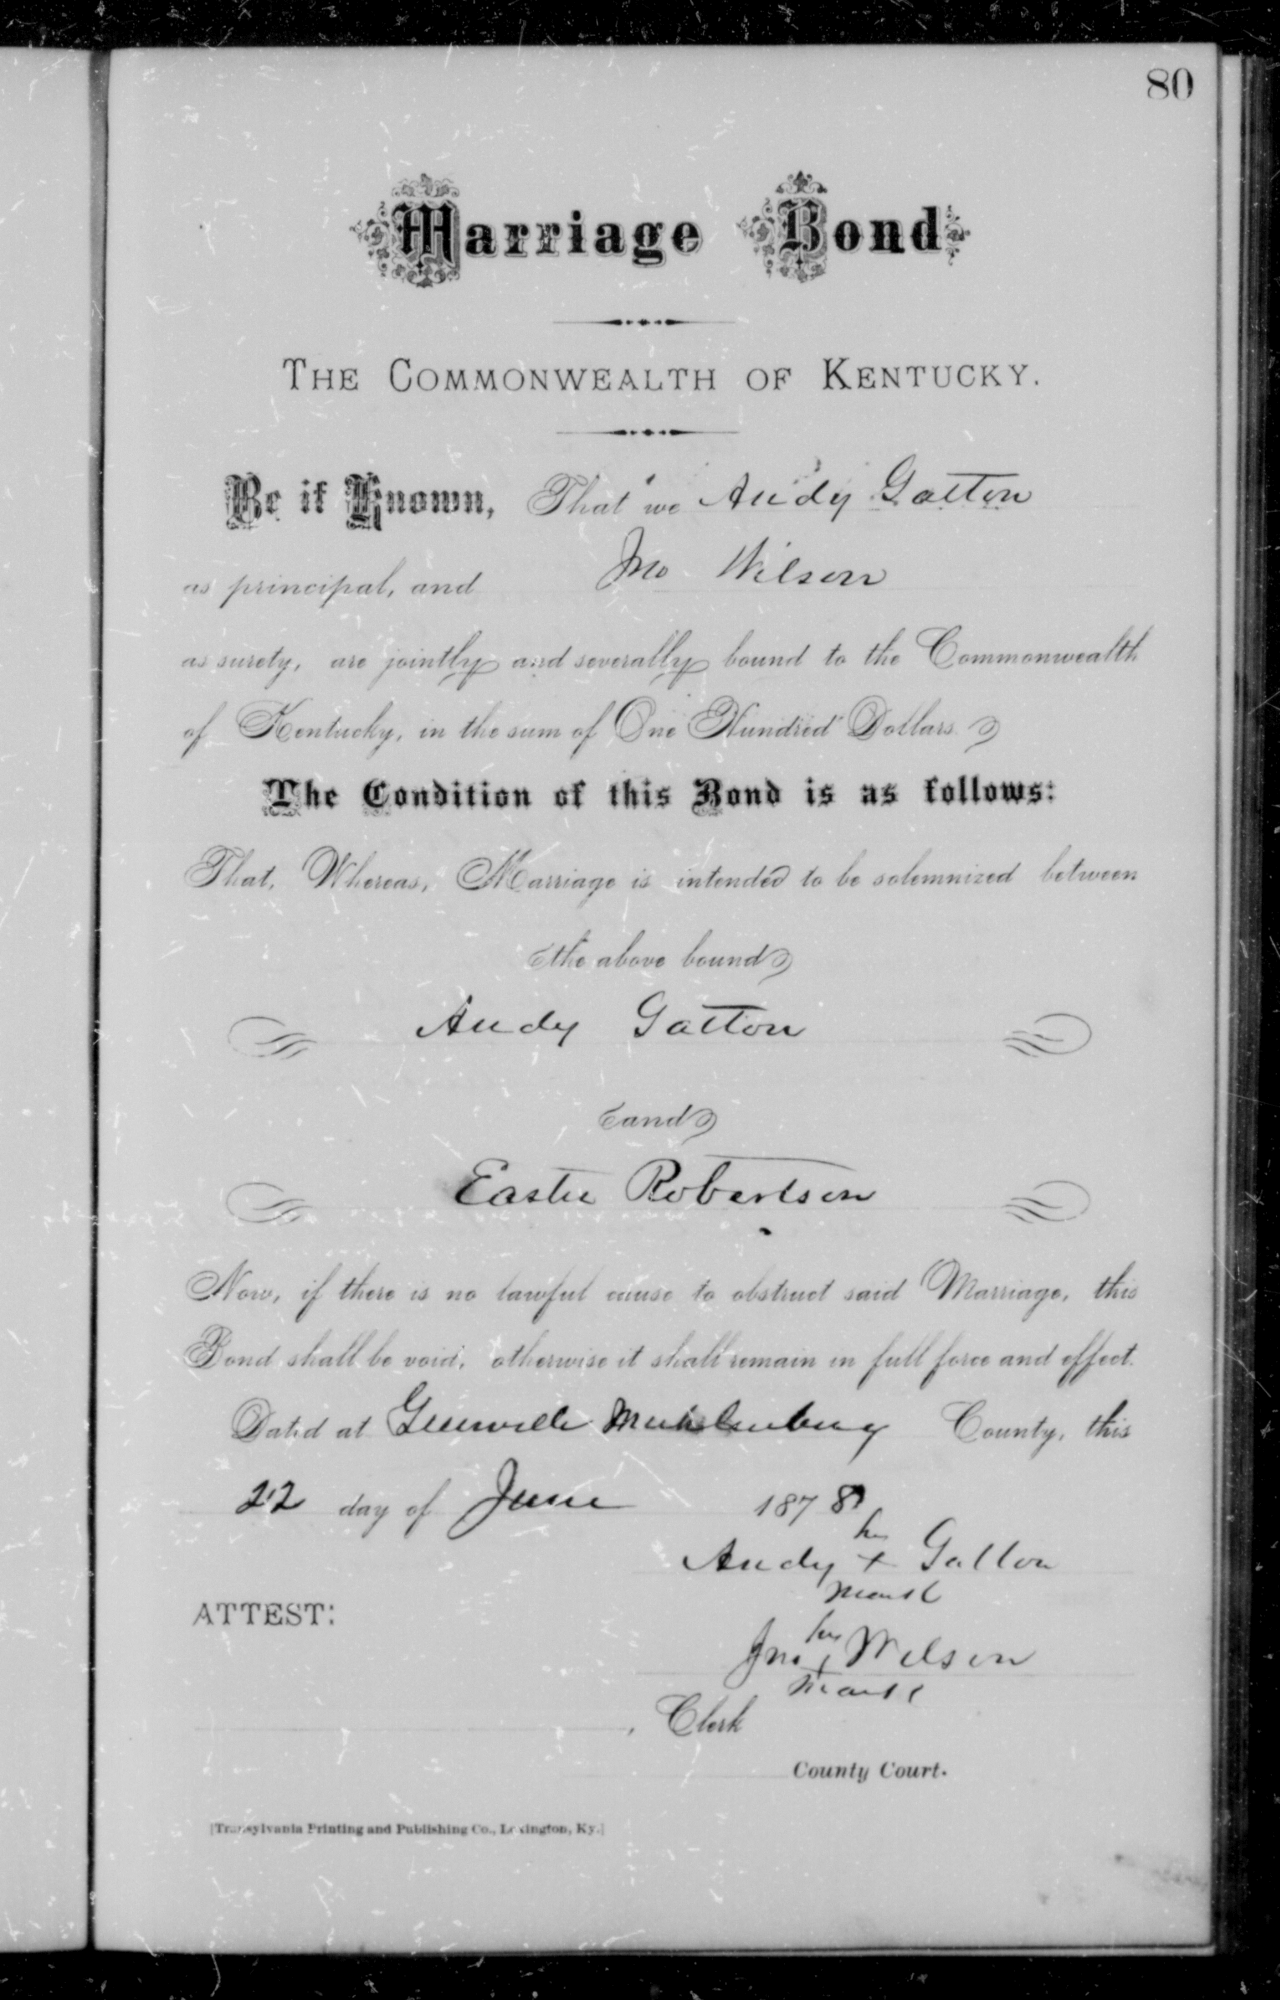 80
Marriage Bond
THE COMMONWEALTH OF KENTUCKY.
Be it Known, That we Andy Gatton
as principal, and Jno Wilson
as surety, are jointly and severally bound to the Commonwealth
of Kentucky, in the sum of One Hundred Dollars.
The Condition of this Bond is as follows:
That, Whereas, Marriage is intended to be solemnized between
the above bound
Andy Gatton
and
Eastie Robertson
Now, if there is no lawful cause to obstruct said Marriage, this
Bond shall be void, otherwise it shall remain in full force and effect.
Dated at Greenville Muhlenberg County, this
22 day of June 1878
his
Andy + Gatton
mark
ATTEST:
his
Jno + Wilson
mark
, Clerk
County Court.
[Transylvania Printing and Publishing Co., Lexington, Ky.]